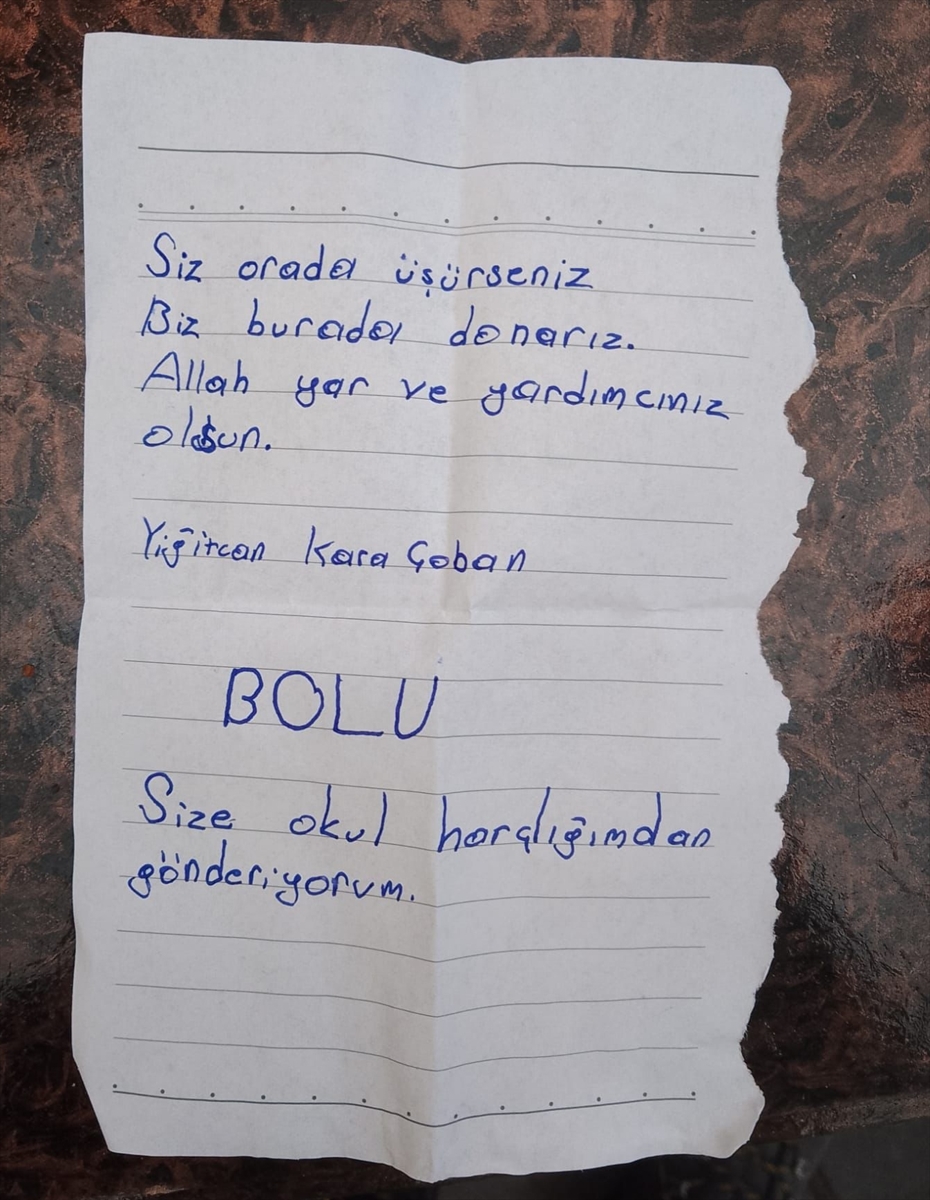 Siz orada üşürseniz
Biz burada donarız.
Allah yar ve yardımcınız
olsun.
Yiğitcan Kara Çoban
BOLU
Size okul harçlığımdan
gönderiyorum.